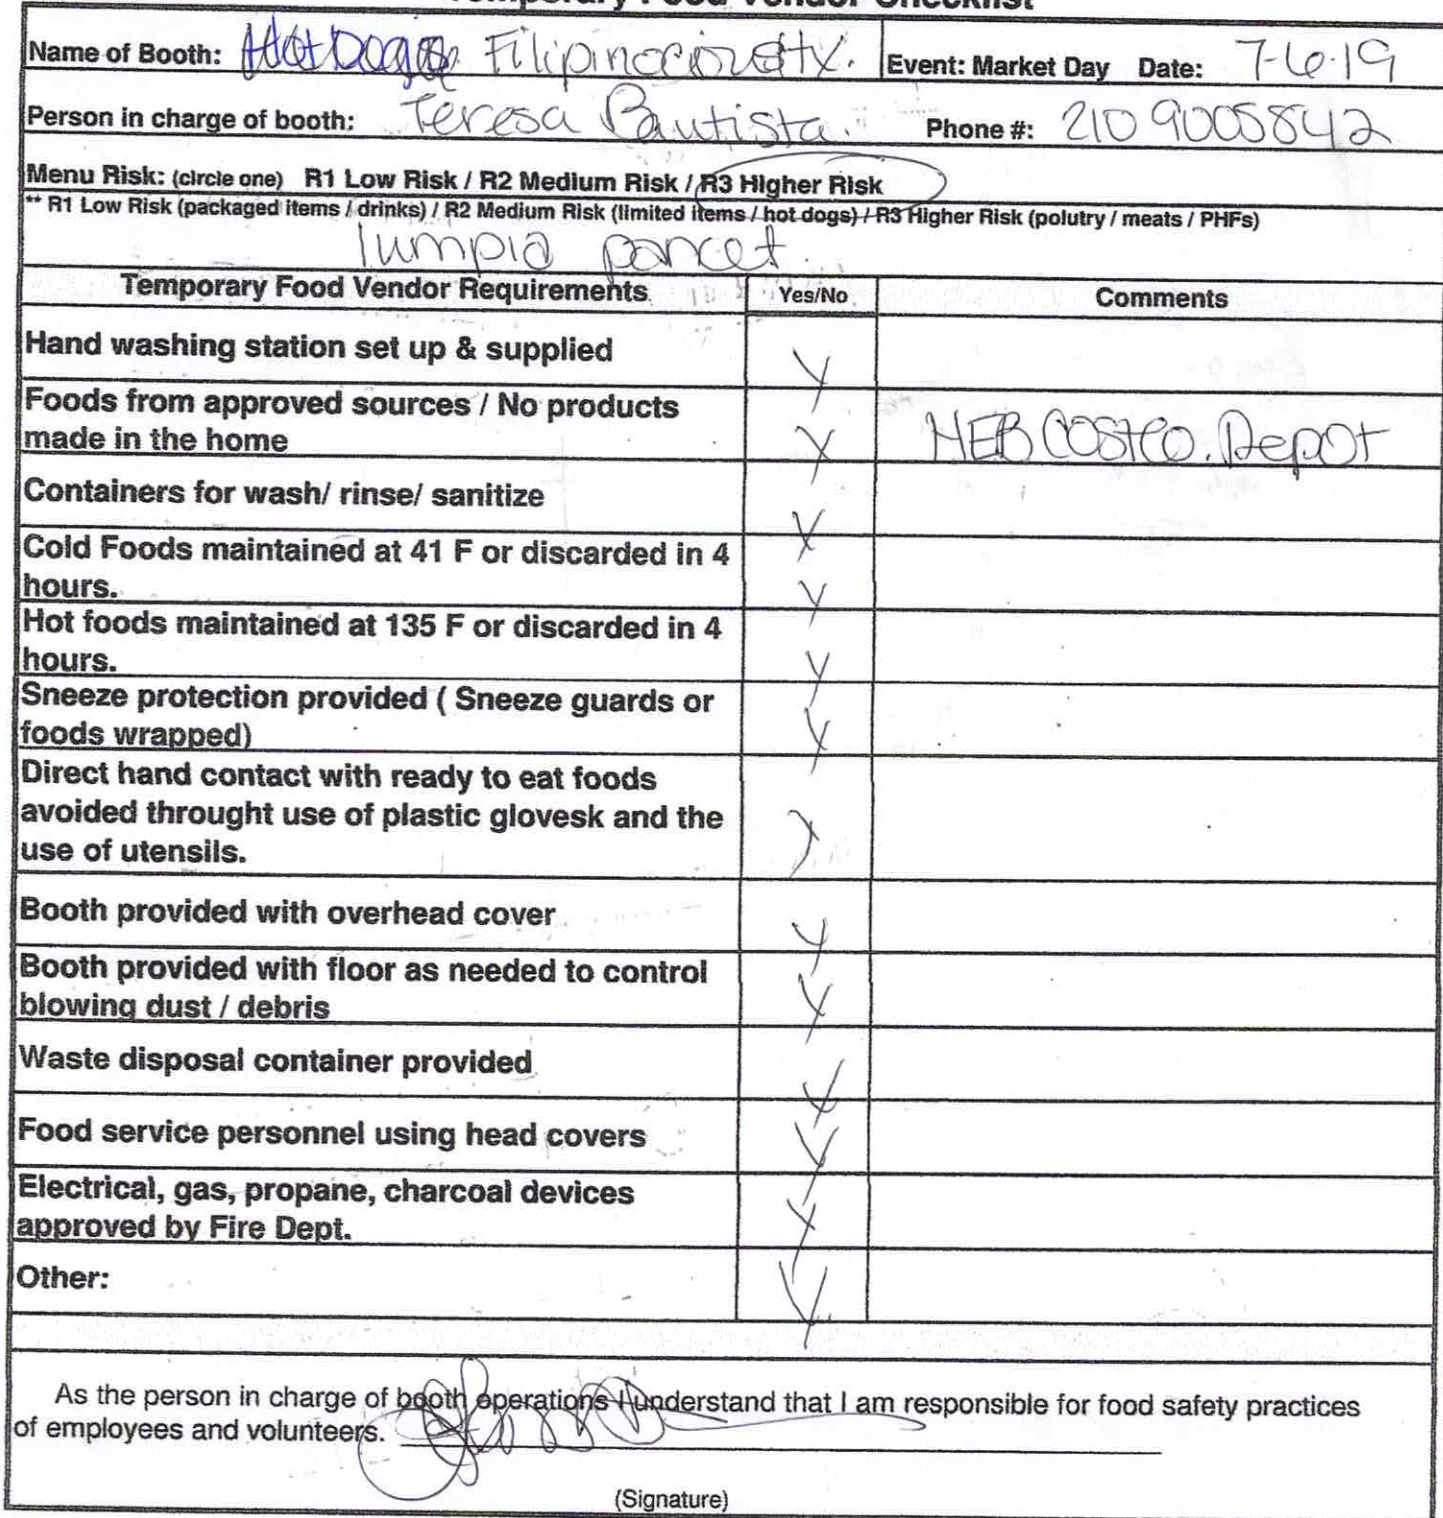 Temporary Food Vendor Checklist
Name of Booth: Filipino Event: Market Day Date: 7-6-19
Person in charge of booth: Teresa Bautista. Phone #: 210 9005842
Menu Risk: (circle one) R1 Low Risk / R2 Medium Risk / R3 Higher Risk
** R1 Low Risk (packaged items / drinks) / R2 Medium Risk (limited items / hot dogs) / R3 Higher Risk (polutry / meats / PHFs)
lumpia pancet.
Temporary Food Vendor Requirements Yes/No Comments
Hand washing station set up & supplied Y
Foods from approved sources / No products
made in the home Y HEB COSTCO. Depot
Containers for wash/ rinse/ sanitize Y
Cold Foods maintained at 41 F or discarded in 4
hours. Y
Hot foods maintained at 135 F or discarded in 4
hours. Y
Sneeze protection provided ( Sneeze guards or
foods wrapped) Y
Direct hand contact with ready to eat foods
avoided throught use of plastic glovesk and the
use of utensils. Y
Booth provided with overhead cover Y
Booth provided with floor as needed to control
blowing dust / debris Y
Waste disposal container provided Y
Food service personnel using head covers Y
Electrical, gas, propane, charcoal devices
approved by Fire Dept. Y
Other: Y
As the person in charge of booth operations I understand that I am responsible for food safety practices
of employees and volunteers.
(Signature)